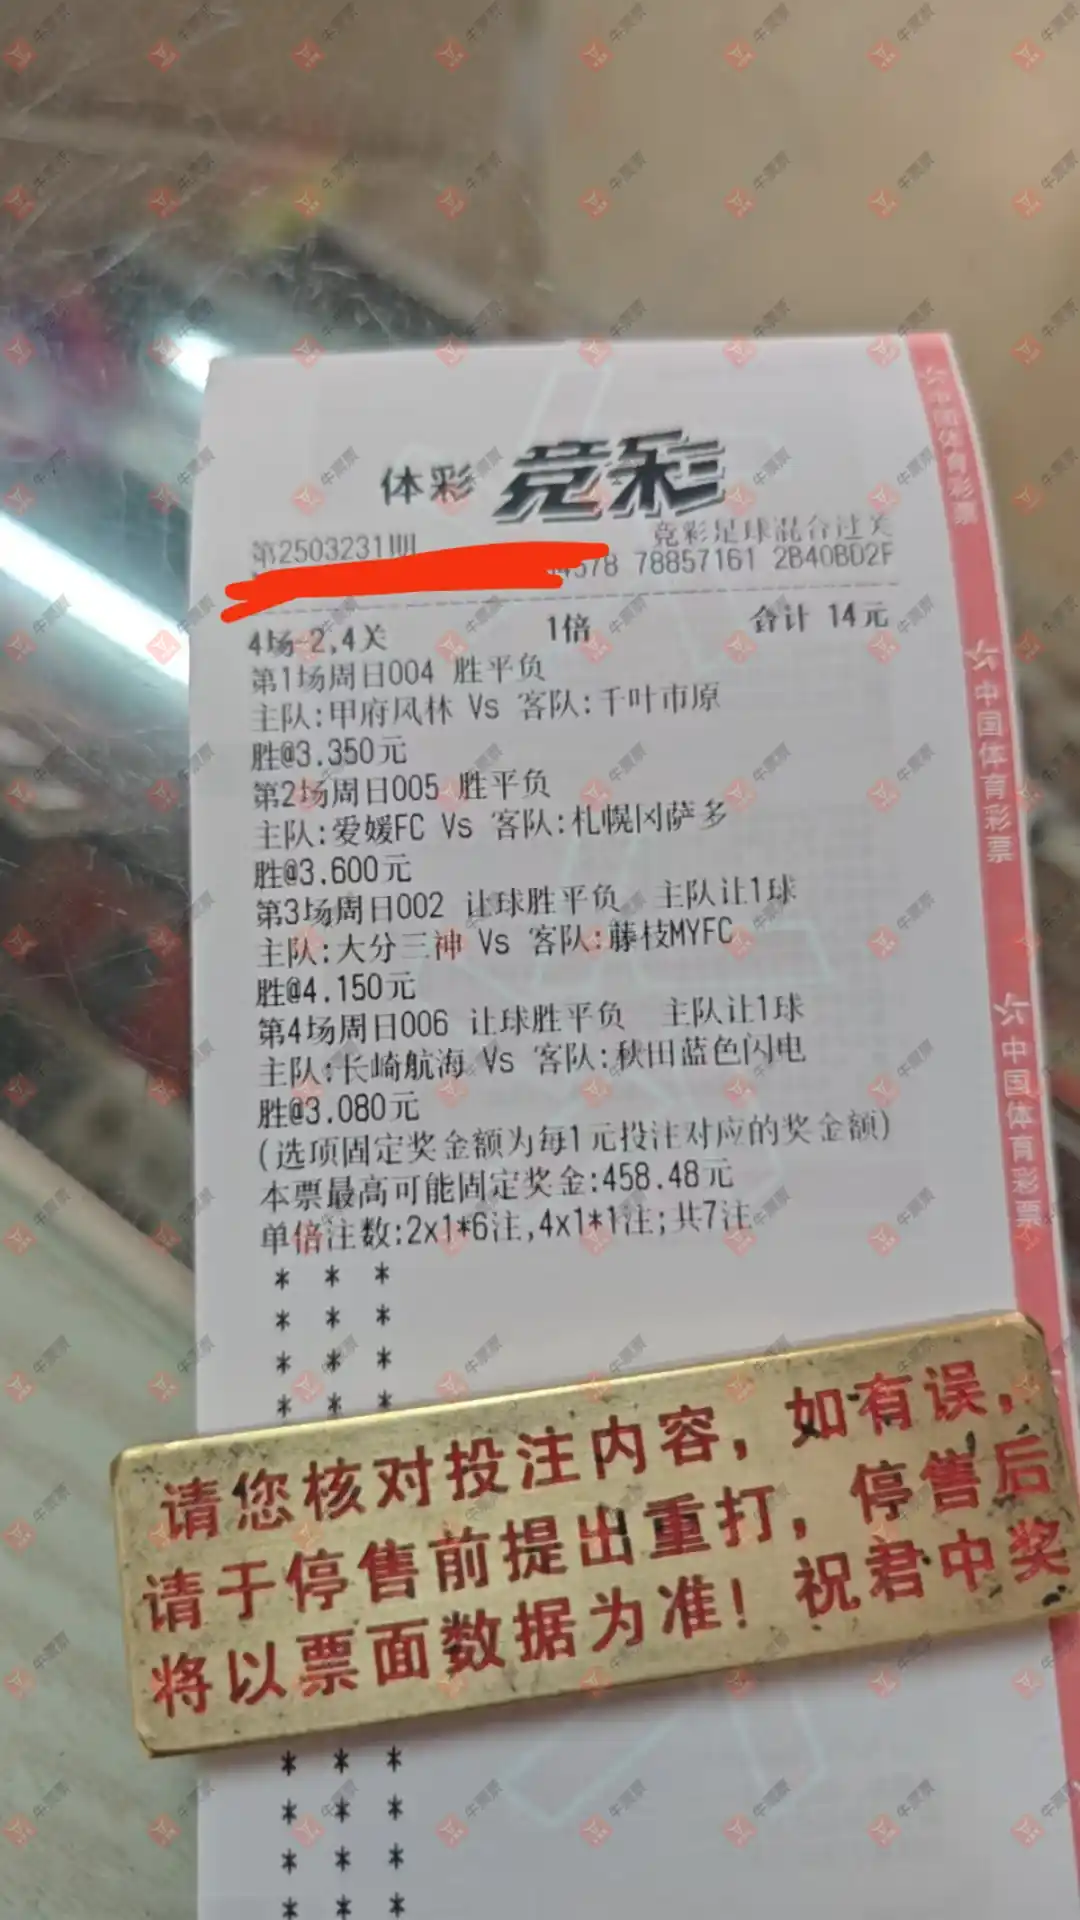 体彩 竞彩
第2503231期 竞彩足球混合过关
4578 78857161 2B40BD2F
4场-2,4关 1倍 合计 14元
第1场周日004 胜平负
主队:甲府风林 Vs 客队:千叶市原
胜@3.350元
第2场周日005 胜平负
主队:爱媛FC Vs 客队:札幌冈萨多
胜@3.600元
第3场周日002 让球胜平负 主队让1球
主队:大分三神 Vs 客队:藤枝MYFC
胜@4.150元
第4场周日006 让球胜平负 主队让1球
主队:长崎航海 Vs 客队:秋田蓝色闪电
胜@3.080元
(选项固定奖金额为每1元投注对应的奖金额)
本票最高可能固定奖金:458.48元
单倍注数:2x1*6注,4x1*1注;共7注
* * *
* * *
* * *
* * *
请您核对投注内容，如有误，
请于停售前提出重打，停售后
将以票面数据为准！祝君中奖
* * *
* * *
* * *
* * *
中国体育彩票
中国体育彩票
中国体育彩票
牛票票